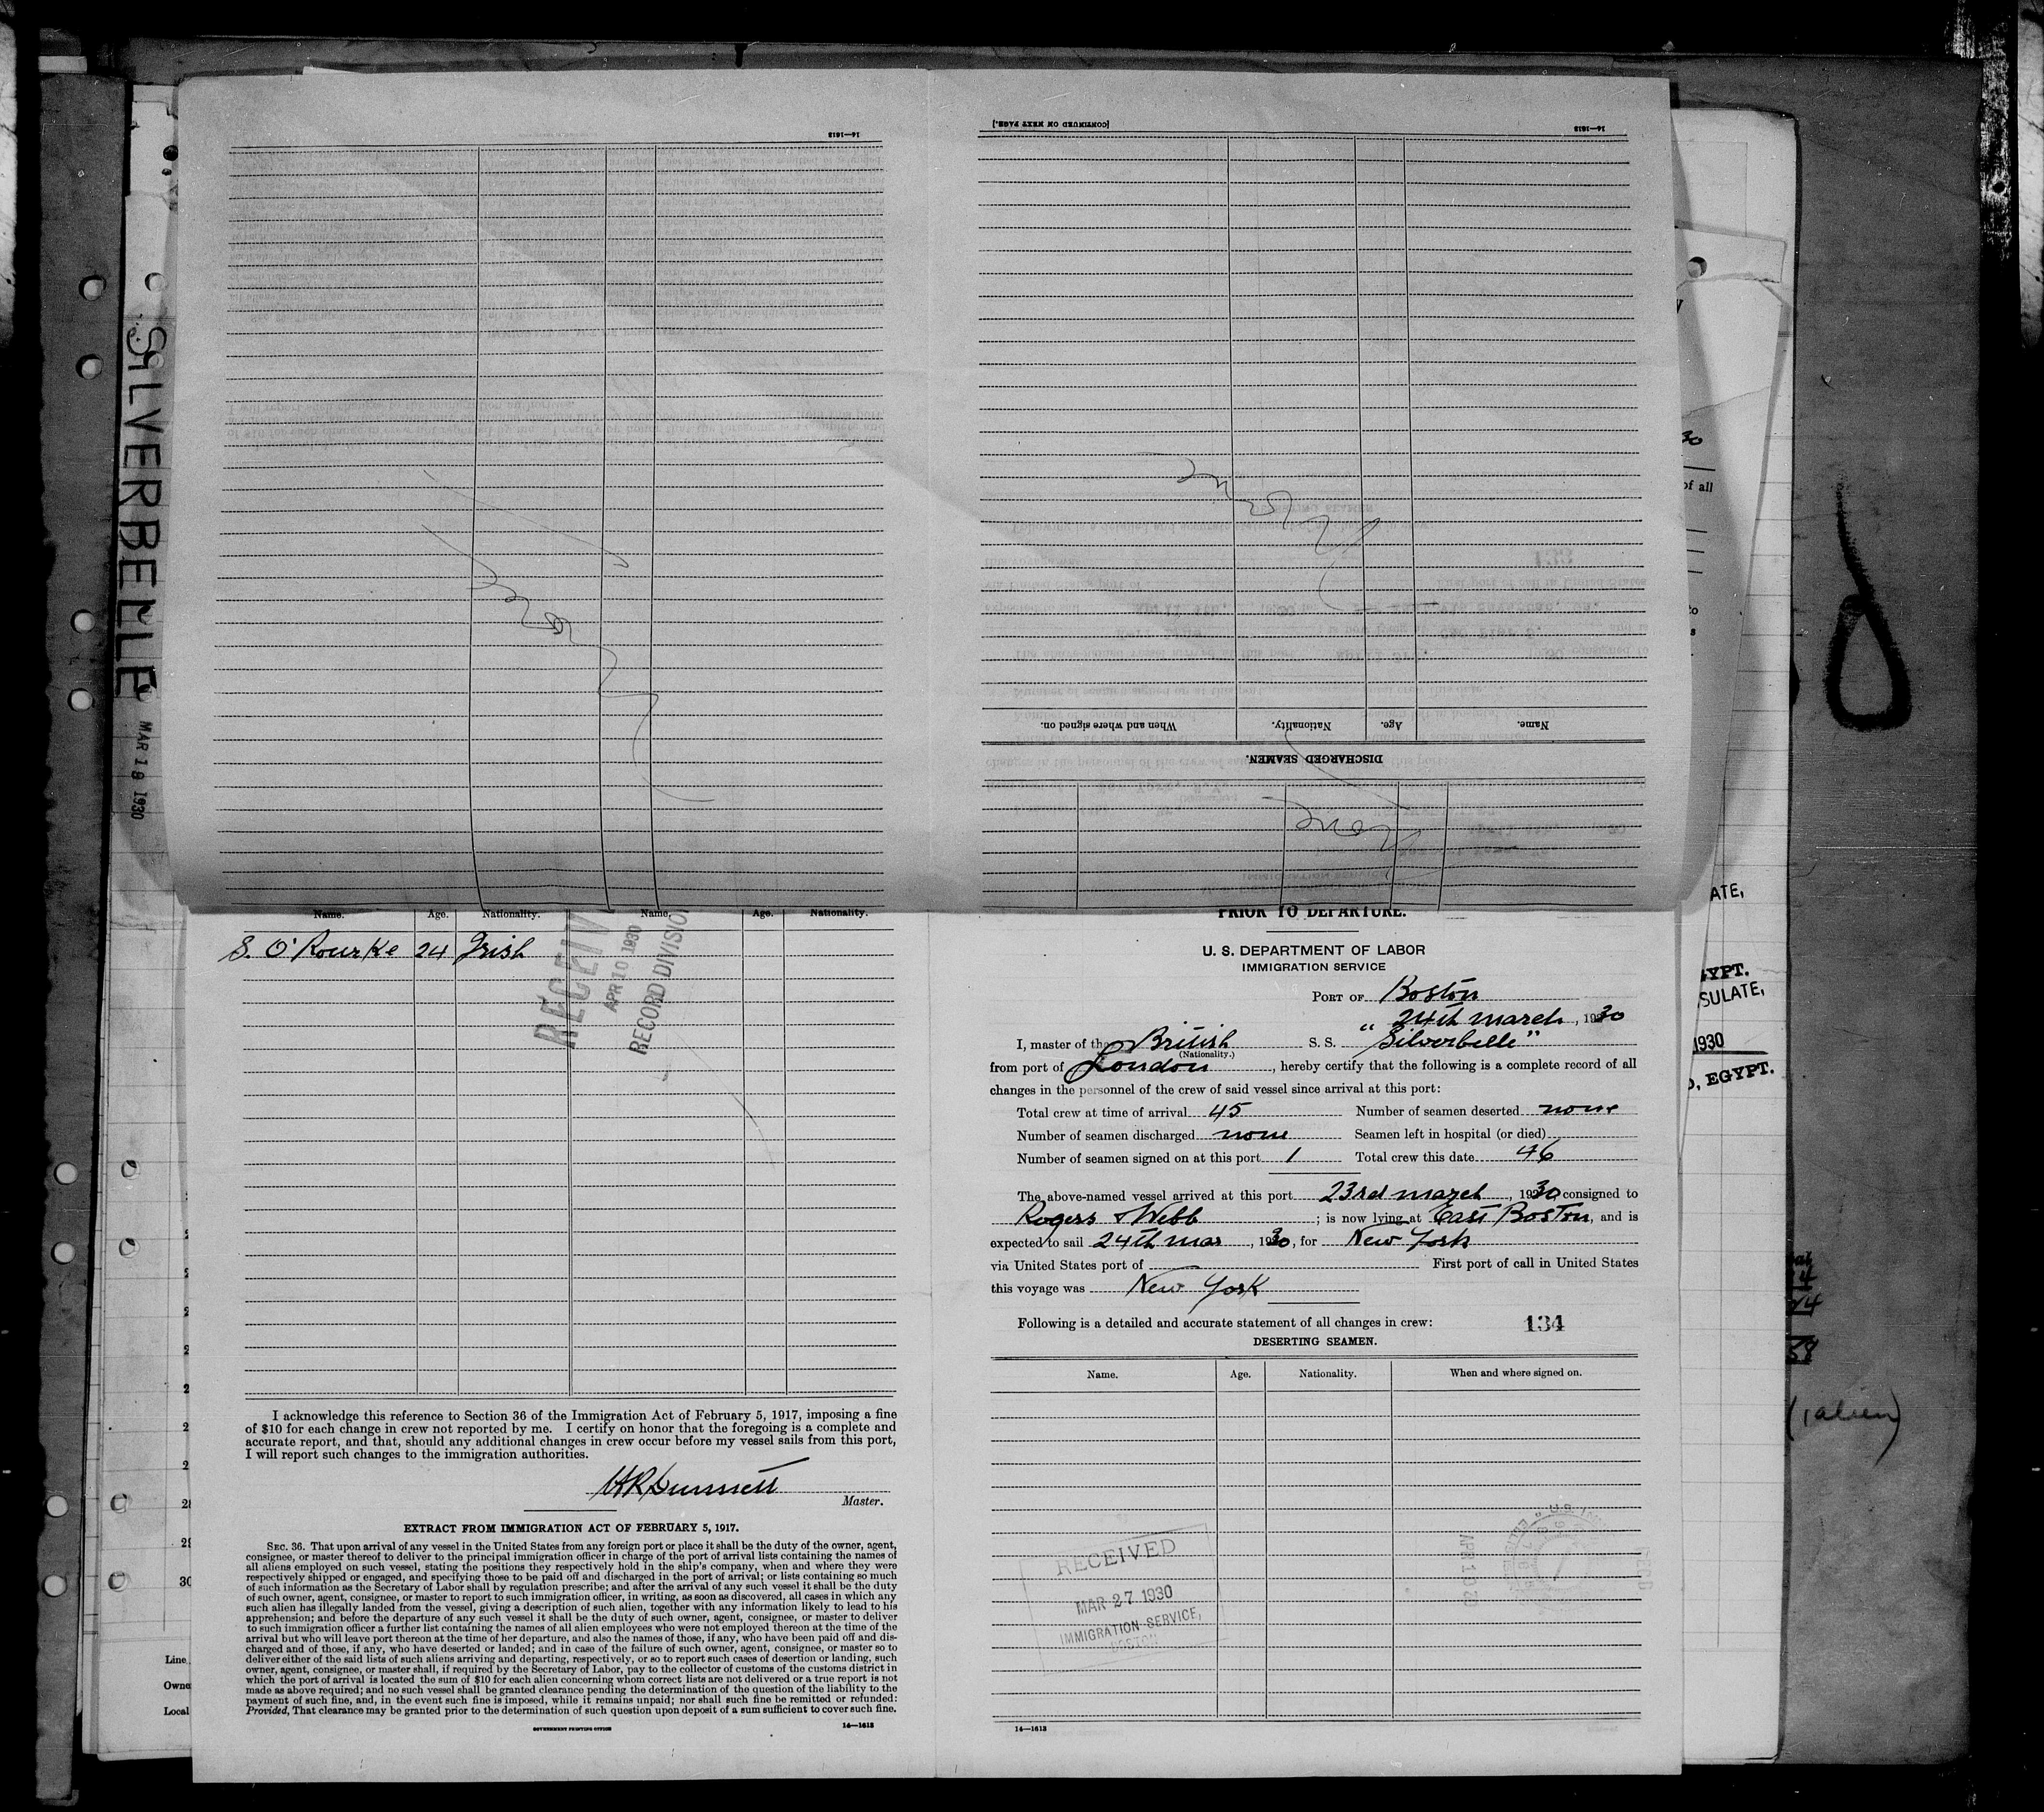 SILVERBELLE MAR 18 1930
[CONTINUED ON NEXT PAGE.]
14—1613
14—1613
When and where signed on.
Nationality.
Age.
Name.
DISCHARGED SEAMEN.
None
None
None
Name. Age. Nationality. Name. Age. Nationality.
S. O'Rourke 24 Irish
RECEIV
APR 10 1930
RECORD DIVISION
I acknowledge this reference to Section 36 of the Immigration Act of February 5, 1917, imposing a fine
of $10 for each change in crew not reported by me. I certify on honor that the foregoing is a complete and
accurate report, and that, should any additional changes in crew occur before my vessel sails from this port,
I will report such changes to the immigration authorities.
Master.
EXTRACT FROM IMMIGRATION ACT OF FEBRUARY 5, 1917.
SEC. 36. That upon arrival of any vessel in the United States from any foreign port or place it shall be the duty of the owner, agent,
consignee, or master thereof to deliver to the principal immigration officer in charge of the port of arrival lists containing the names of
all aliens employed on such vessel, stating the positions they respectively hold in the ship's company, when and where they were
respectively shipped or engaged, and specifying those to be paid off and discharged in the port of arrival; or lists containing so much
of such information as the Secretary of Labor shall by regulation prescribe; and after the arrival of any such vessel it shall be the duty
of such owner, agent, consignee, or master to report to such immigration officer, in writing, as soon as discovered, all cases in which any
such alien has illegally landed from the vessel, giving a description of such alien, together with any information likely to lead to his
apprehension; and before the departure of any such vessel it shall be the duty of such owner, agent, consignee, or master to deliver
to such immigration officer a further list containing the names of all alien employees who were not employed thereon at the time of the
arrival but who will leave port thereon at the time of her departure, and also the names of those, if any, who have been paid off and dis-
charged and of those, if any, who have deserted or landed; and in case of the failure of such owner, agent, consignee, or master so to
deliver either of the said lists of such aliens arriving and departing, respectively, or so to report such cases of desertion or landing, such
owner, agent, consignee, or master shall, if required by the Secretary of Labor, pay to the collector of customs of the customs district in
which the port of arrival is located the sum of $10 for each alien concerning whom correct lists are not delivered or a true report is not
made as above required; and no such vessel shall be granted clearance pending the determination of the question of the liability to the
payment of such fine, and, in the event such fine is imposed, while it remains unpaid; nor shall such fine be remitted or refunded:
Provided, That clearance may be granted prior to the determination of such question upon deposit of a sum sufficient to cover such fine.
GOVERNMENT PRINTING OFFICE 14—1613
PRIOR TO DEPARTURE.
U. S. DEPARTMENT OF LABOR
IMMIGRATION SERVICE
PORT OF Boston
24th march, 1930
I, master of the British S. S. "Silverbelle"
(Nationality.)
from port of London, hereby certify that the following is a complete record of all
changes in the personnel of the crew of said vessel since arrival at this port:
Total crew at time of arrival 45 Number of seamen deserted none
Number of seamen discharged none Seamen left in hospital (or died)
Number of seamen signed on at this port 1 Total crew this date 46
The above-named vessel arrived at this port 23rd march, 1930, consigned to
Rogers & Webb; is now lying at East Boston, and is
expected to sail 24th mar, 1930, for New York
via United States port of First port of call in United States
this voyage was New York
Following is a detailed and accurate statement of all changes in crew: 134
DESERTING SEAMEN.
Name. Age. Nationality. When and where signed on.
RECEIVED
MAR 27 1930
IMMIGRATION SERVICE,
BOSTON
14—1613
30
of all
ATE,
YPT.
SULATE,
1930
, EGYPT.
(1 alien)
Line
Owne
Local
30